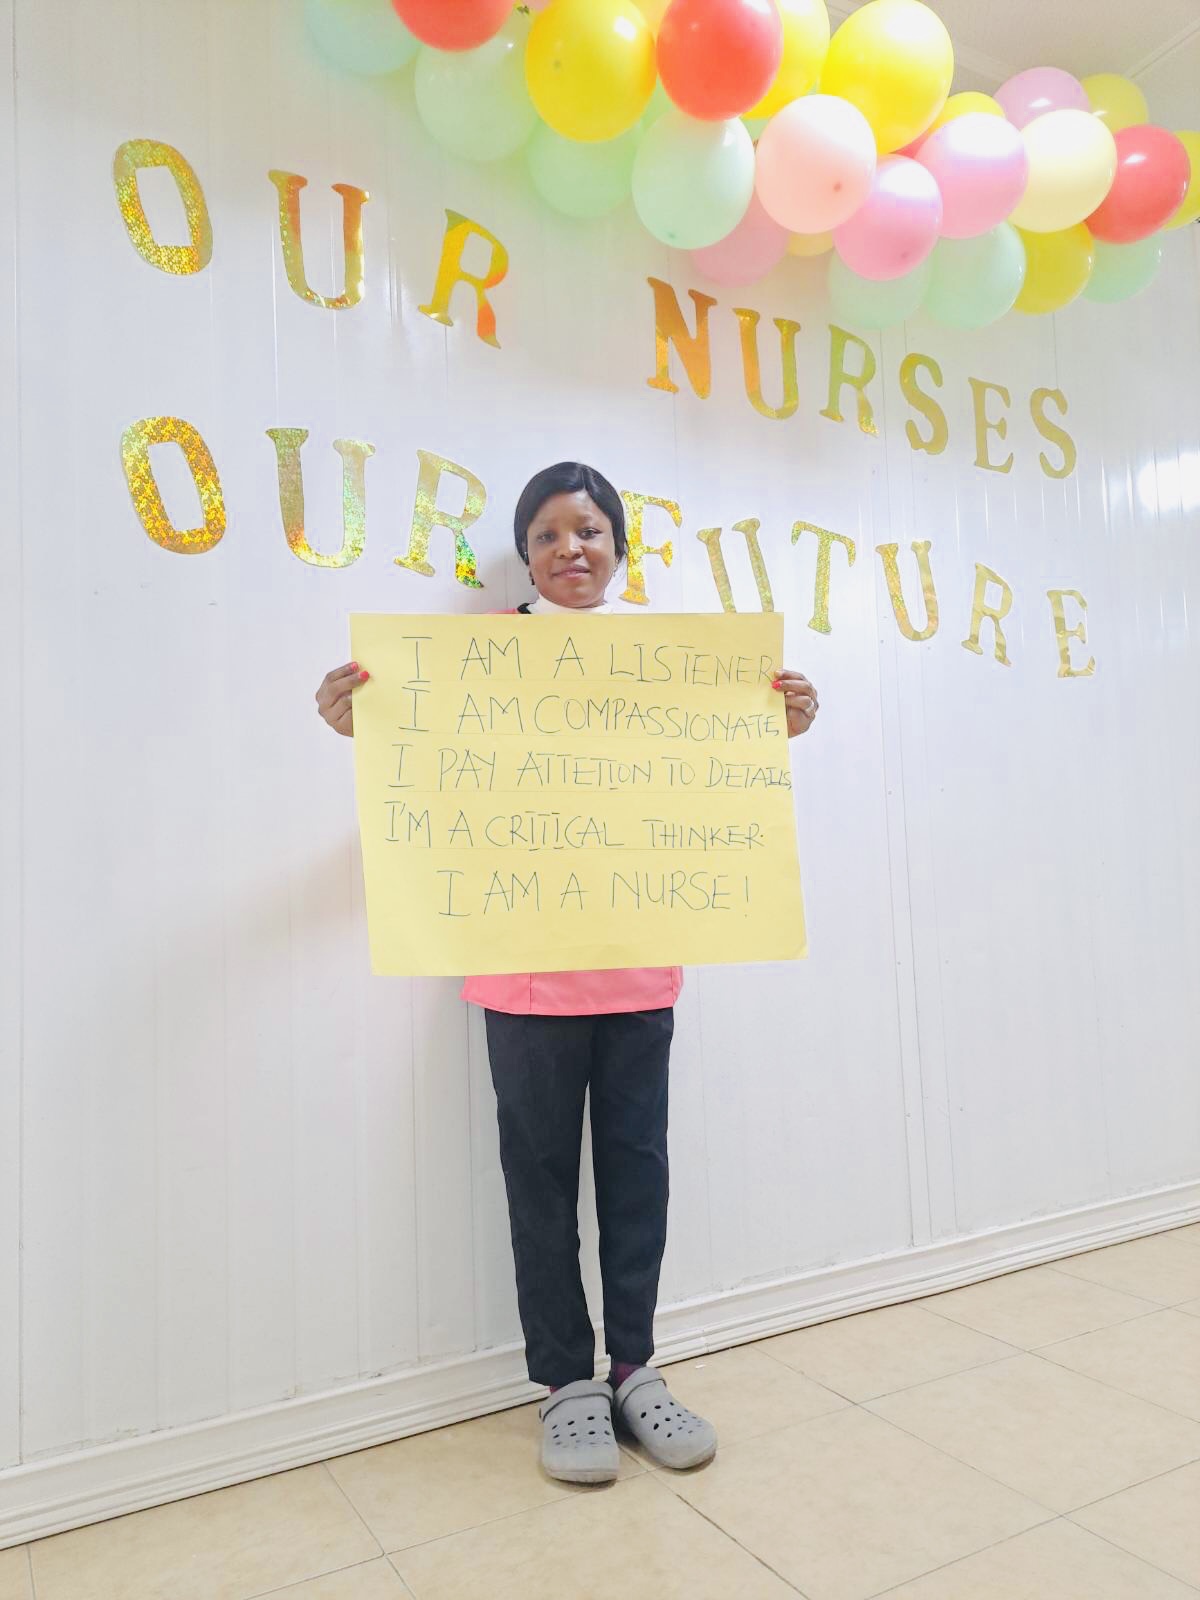 OUR NURSES
OUR FUTURE
I AM A LISTENER
I AM COMPASSIONATE,
I PAY ATTETION TO DETAILS,
I'M A CRITICAL THINKER.
I AM A NURSE!